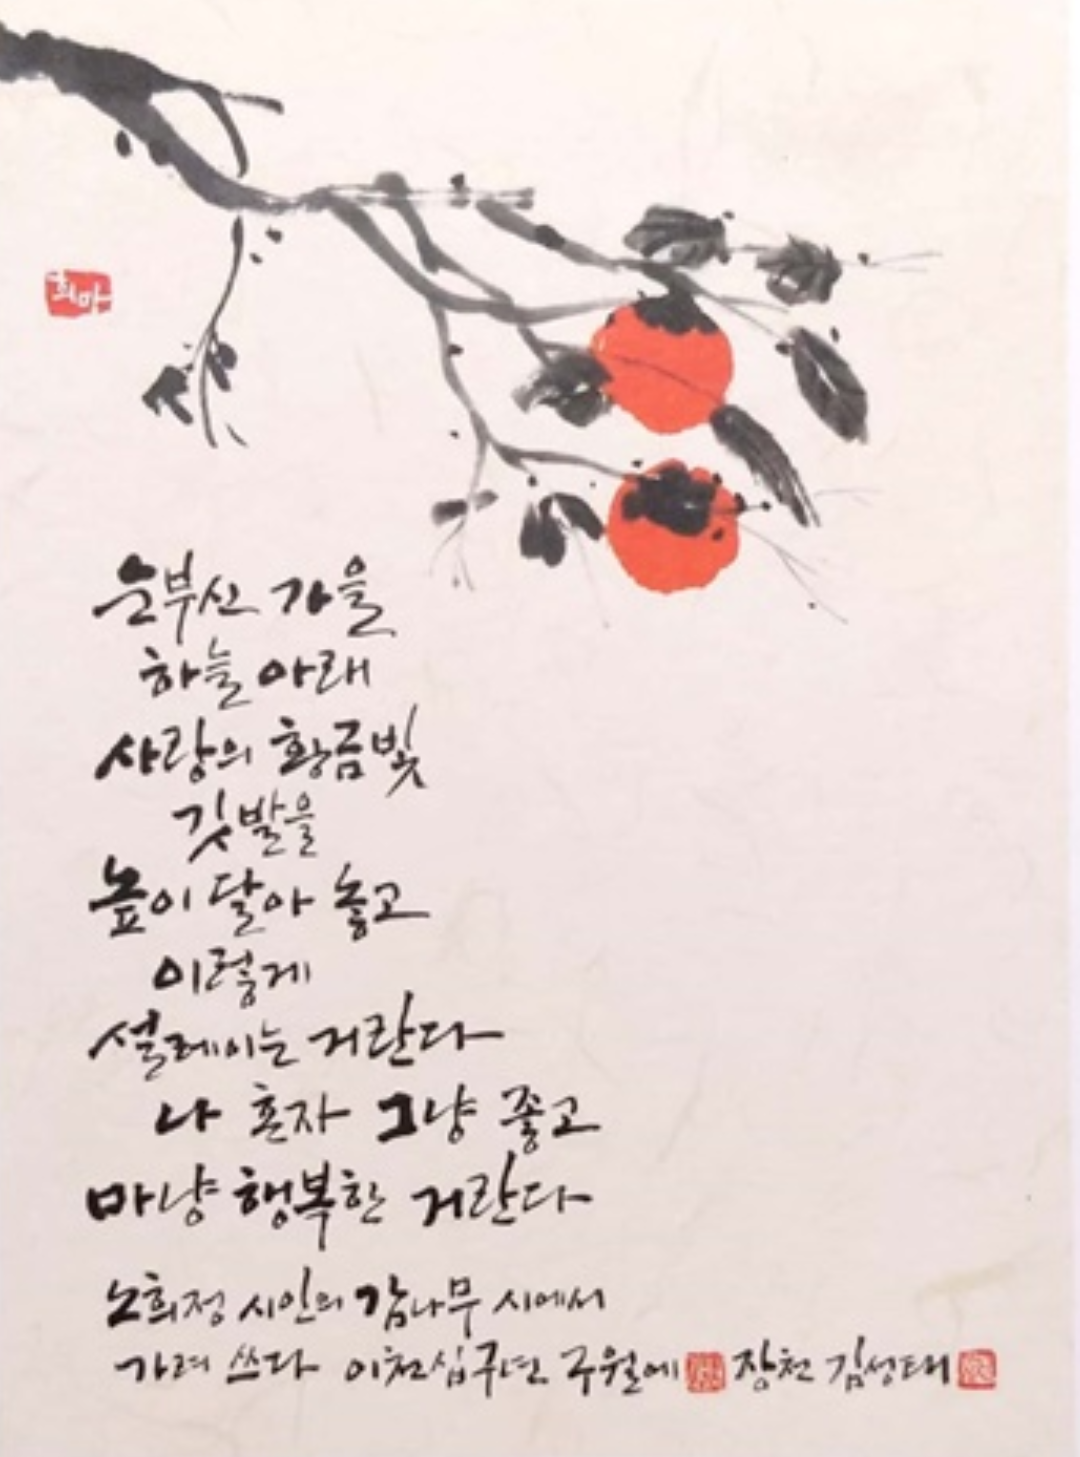 희마
눈부신 가을
하늘 아래
사랑의 황금빛
깃발을
높이 달아 놓고
이렇게
설레이는 거란다
나 혼자 그냥 좋고
마냥 행복한 거란다
노희정 시인의 감나무 시에서
가려 쓰다 이천십구년 구월에 장천 김성태